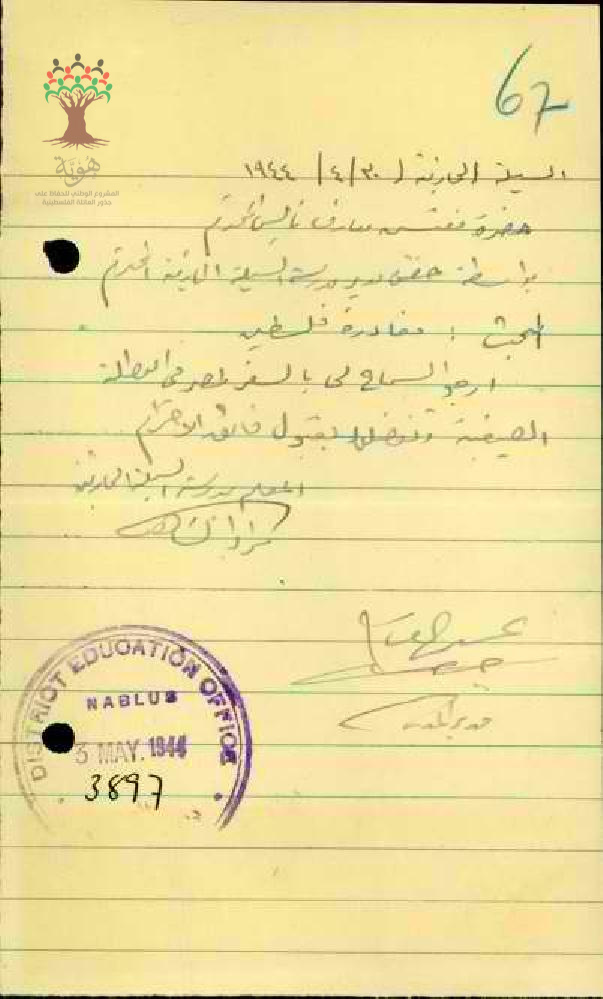 67
هوية
المشروع الوطني للحفاظ على
جذور العائلة الفلسطينية
السيلة الحارثية / ٣٠ / ٤ / ١٩٤٤
حضرة مفتش معارف نابلس المحترم
بواسطة حضرة مدير مدرسة السيلة الحارثية المحترم
البحث : مغادرة فلسطين
ارجو السماح لي بالسفر لمصر في العطلة
الصيفية وتفضلوا بقبول فائق الاحترام
المعلم بمدرسة السيلة الحارثية
مدير المدرسة
DISTRICT EDUCATION OFFICE
NABLUS
3 MAY. 1944
3897